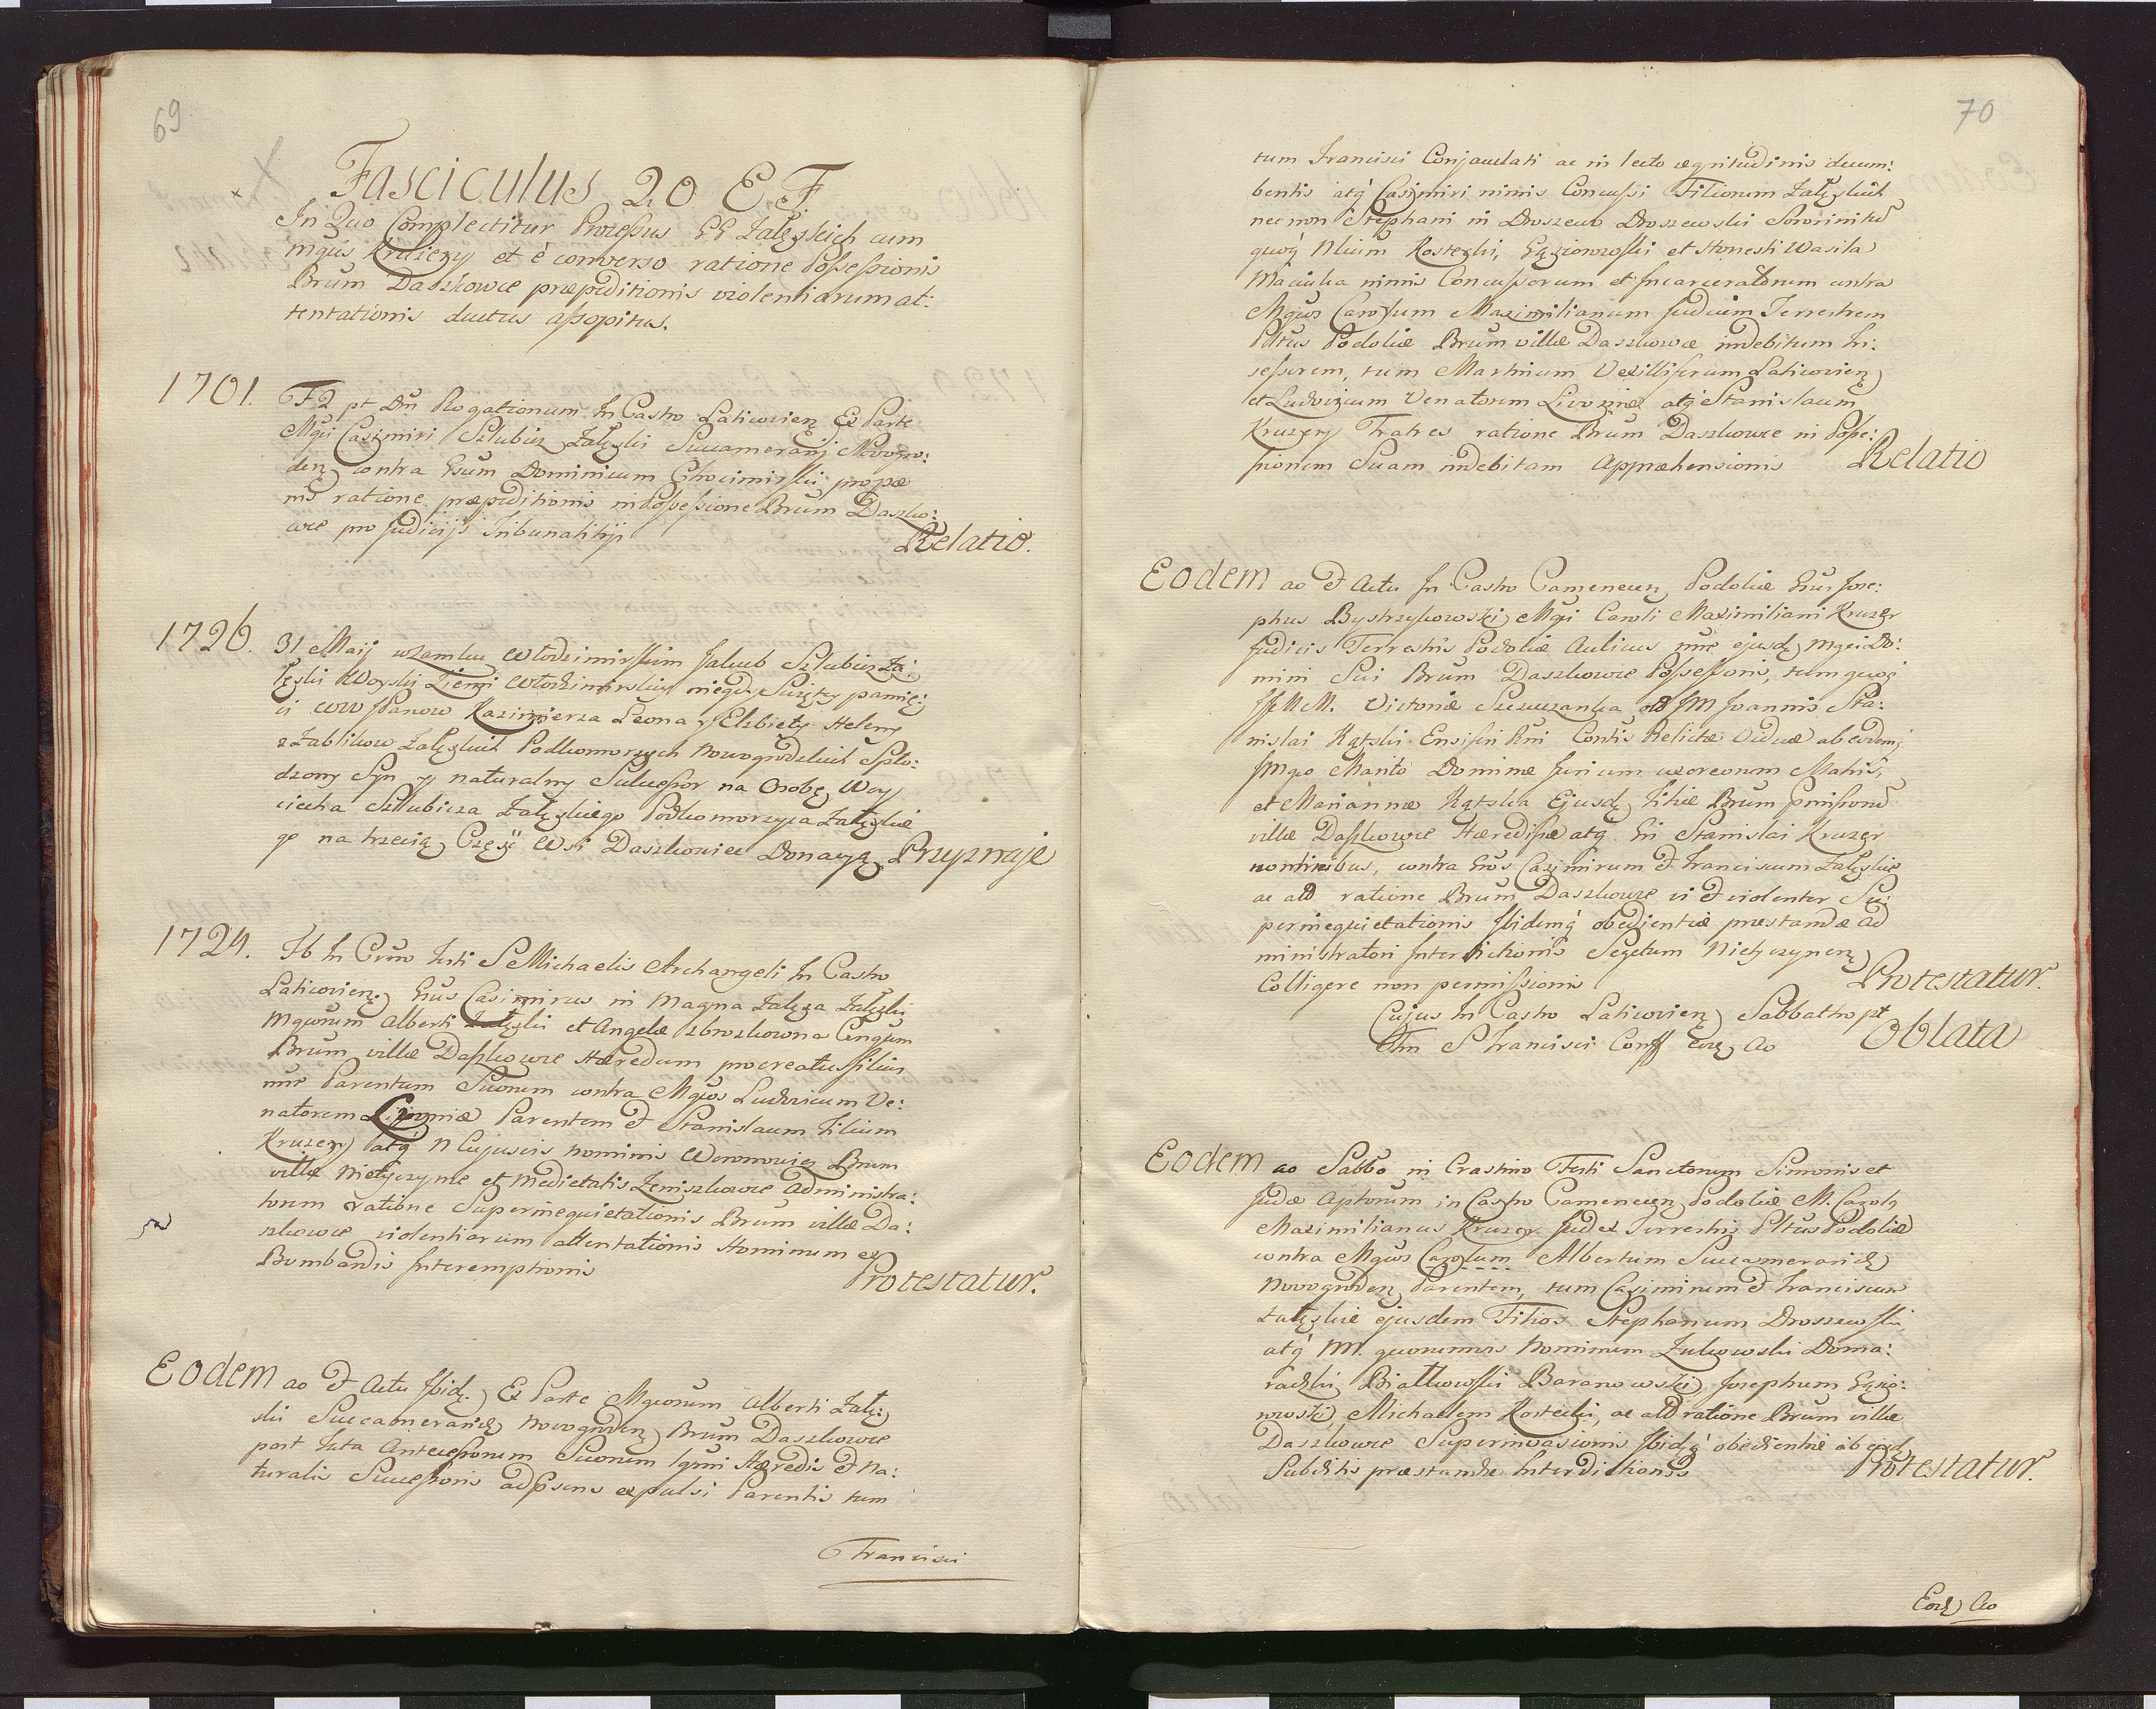 69
Fasciculus 20 E. F.
In Quo Complectitur Processus GG Załęskich cum
Mgcis Kruzery et è converso ratione Possessionis
Brum Daszkowce præpeditionis violentiarum at:
tentationis ductus assopitus.
1701. F 2 pt Dm Rogationum In Castro Laticovien Ex Parte
Mgci Casimiri Szlubicz Załęski Succamerarij Novogro:
den contra Gsum Dominicum Chocimirski propæ
nis ratione præpeditionis in Possessione Brum Daszko:
wce pro Judicijs Tribunalitijs Relatio.
1726. 31 Maij w Zamku Włodzimirskim Jakub Szlubicz Za:
łęski Woyski Ziemi Włodzimirskiey niegdy Swiętey pamię:
ci WW Panow Kazimierza Leona y Elzbiety Heleny
z Zablikow Załęskich Podkomorzych Nowogrodzkich Spło:
dzony Syn y naturalny Sukcessor na Osobę Woy
ciecha Szlubicza Załęskiego Podkomorzyca Załęskie
go na trzecią Częsc Wsi Daszkowiec Donacyą Przyznaje
1729. Fb In Crmo Festi S Michaelis Archangeli In Castro
Laticovien Gsus Casimirus in Magna Załęza Załęski
Mgcorum Alberti Załęski et Angelæ Zbroszkowna Congum
Brum villæ Daszkowce Hæredum procreatus filius
nne Parentum Suorum contra Mgcos Ludovicum Ve:
natorem Livoniæ Parentem & Stanislaum Filium
Kruzery atq N Cujusvis nominis Woronowicz Brum
villæ Nietyczyńce et Medietatis Zeniszkowce Administra:
torem ratione Superinequietationis Brum villæ Da:
szkowce violentiarum attentationis Hominum ex
Bombardis Interemptionis Protestatur.
Eodem ao & Actu Ibid. Ex Parte Mgcorum Alberti Załę:
ski Succamerarid Novogroden Brum Daszkowce
post Fata Antecessorum Suorum lgmi Hæredis & Na:
turalis Successoris ad psens expulsi Parentis tum
Francisci
70
tum Francisci Conjaculati ac in lecto ægritudinis decum:
bentis atq Casimiri nimis Concussi Filiorum Załęskich
nec non Stephani in Droszew Droszewski Sororini tū
quoq Nlium Kosteski, Gąsiorowski et Honesti Wasila
Maciuka nimis Concussorum et Incarceratorum contra
Mgcos Carolum Maximilianum Judicem Terrestrem
Pltus Podoliæ Brum villæ Daszkowce indebitum In:
sessorem, tum Martinum Vexilliferum Laticovien
et Ludovicum Venatorem Livoniæ atq Stanislaum
Kruzery Fratres ratione Brum Daszkowce in Posse:
ssionem Suam indebitam Appræhensionis Relatio
Eodem ao & Actu In Castro Camenecen Podoliæ Gsus Jose:
phus Bystrzykowski Mgci Caroli Maximiliani Kruzer
Judicis Terrestris Podoliæ Aulicus nne ejusd Mgci Do:
mini Sui Brum Daszkowce Possessoris, tum quoq
JJMM. Victoriæ Szczuczanka olī JM Joannis Sta:
nislai Kątski Ensiferi Rni Contis Relictæ Viduæ ab eodem
JMgco Marito Dominæ Jurium uxoreorum Matris,
et Mariannæ Kątska Ejusd Filiæ Brum pmissorū
villæ Daszkowce Hæredissæ atq Gi Stanislai Kruzer
nominibus, contra Gsos Casimirum & Franciscum Załęskie
ac alī ratione Brum Daszkowce vi & violenter Su:
perinequietationis Ibidemq obedientiæ præstandæ ad
ministratori Interdictionis Segetum Nietyczynen
Colligere non permissionis Protestatur.
Cujus In Castro Laticovien Sabbatho pt
Ftm S Francisci Conff Eod Ao Oblata
Eodem ao Sabbo in Crastino Festi Sanctorum Simonis et
Judæ Aptorum in Castro Camenecen Podoliæ M. Carols
Maximilianus Kruzer Judex Terrestris Pltus Podoliæ
contra Mgcos Carolum Albertum Succamerarid
Novogroden Parentem, tum Casimirum & Franciscum
Załęskie ejusdem Filios Stephanum Droszewski
atq NN. quorumvis Nominum Zukowski Doma:
radzki Białkowski Baranowski Josephum Gąsio:
rowski Michaelem Kostecki, ac alī ratione Brum villæ
Daszkowce Superinvasionis Ibidq obedientiæ ab ejusd
Subditis præstandæ Interdictionis Protestatur.
Eod Ao